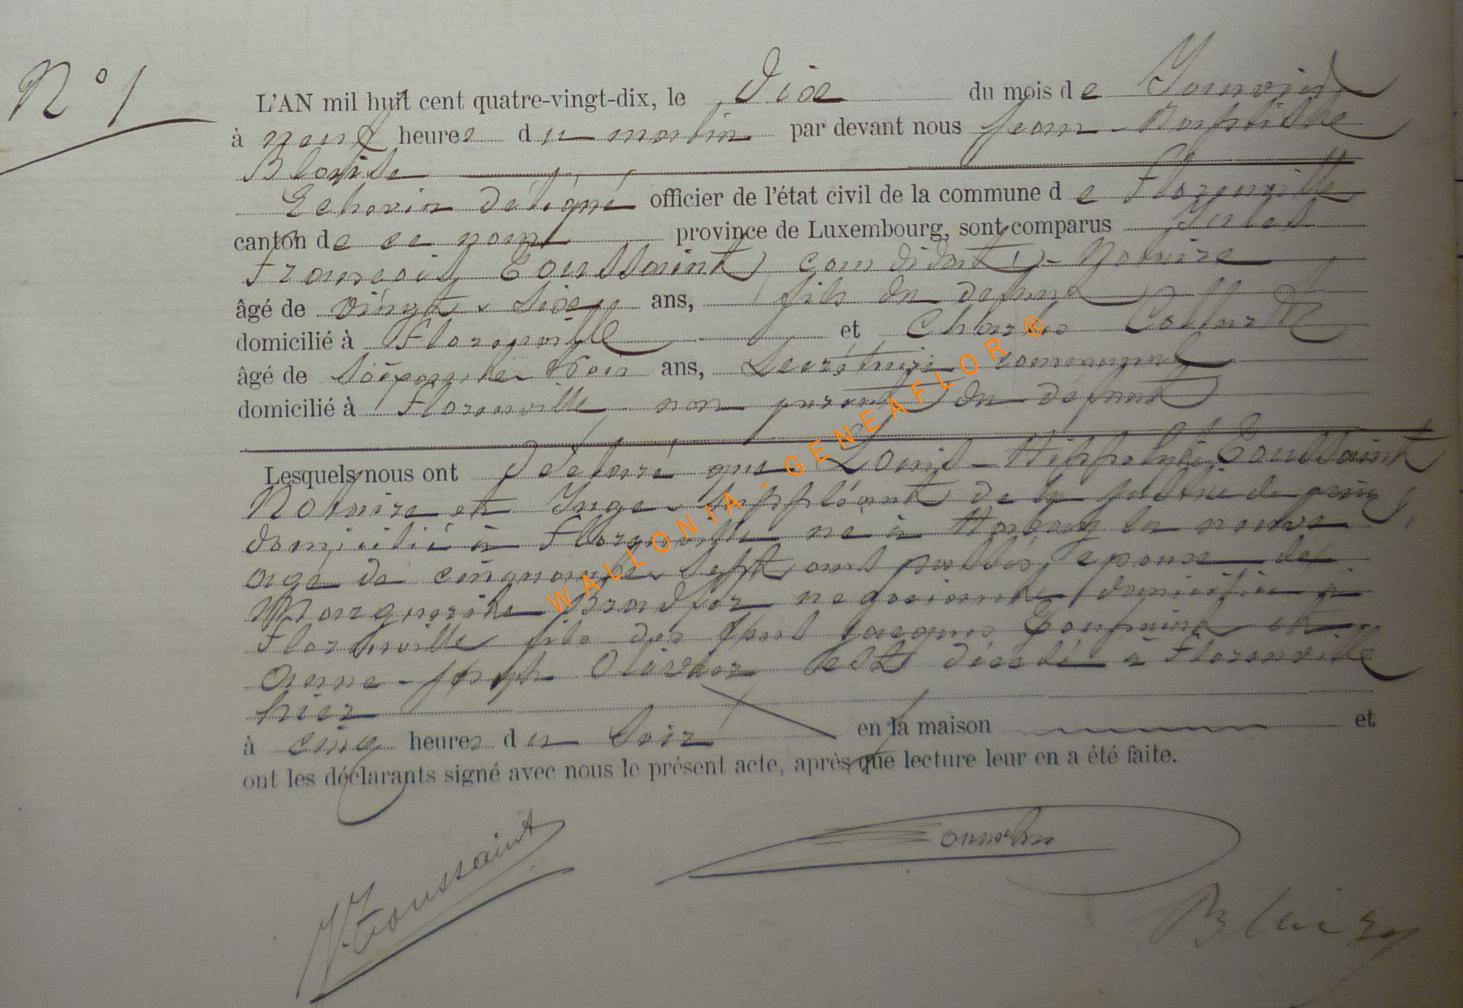 N° 1
L'AN mil huit cent quatre-vingt-dix, le dix du mois de Janvier
à neuf heures du matin par devant nous Jean-Baptiste
Blaise
Echevin délégué officier de l'état civil de la commune de Florenville
canton de ce nom province de Luxembourg, sont comparus Jules
François Toussaint, candidat-Notaire
âgé de vingt-six ans, fils du defunt
domicilié à Florenville et Charles
âgé de soixante trois ans, Secrétaire communal
domicilié à Florenville non parent du défunt
Lesquels nous ont déclaré que Louis-Hippolyte Toussaint
Notaire et Juge-suppléant de la justice de paix,
domicilié à Florenville né à Habay la neuve
agé de cinquante-sept ans epoux de
Marguerite negociante domiciliée à
Florenville fils des Jacques Toussaint et
Anne-Joseph est décédé à Florenville
hier
à cinq heures du soir en la maison et
ont les déclarants signé avec nous le présent acte, après que lecture leur en a été faite.
J. Toussaint
WALLONIA - GENEAFLOR ®